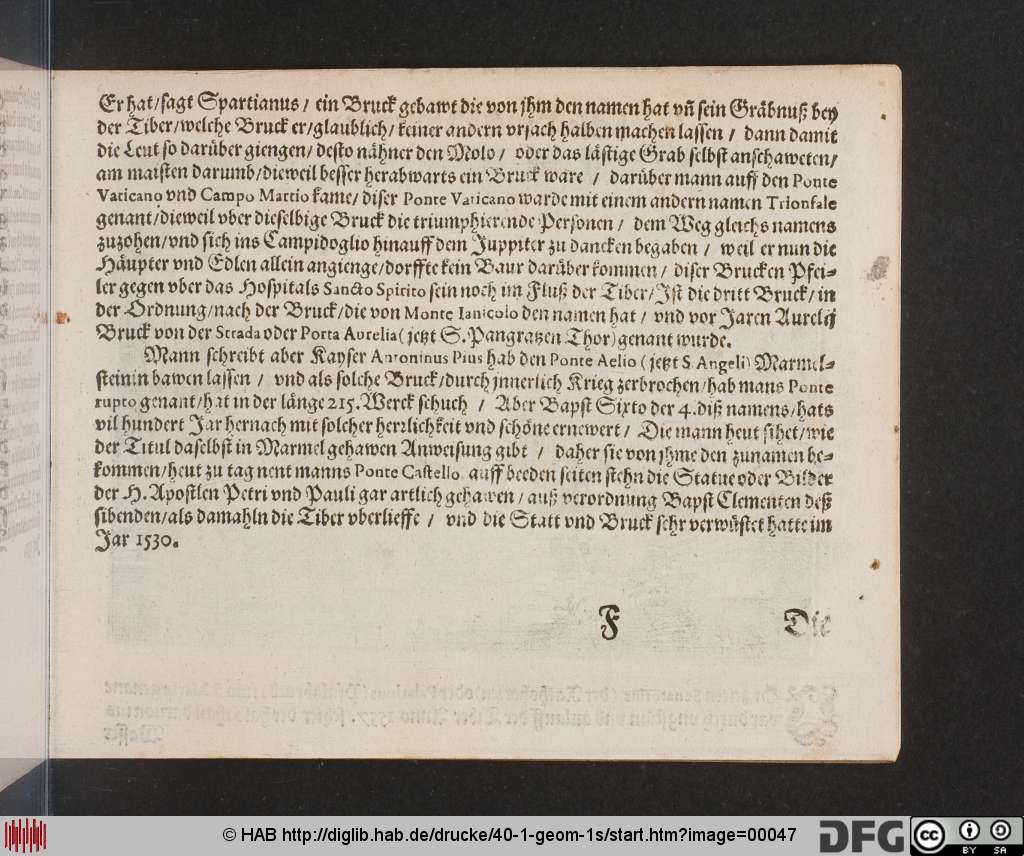 Er hat/sagt Spartianus/ ein Bruck gebawt die von jhm den namen hat vñ sein Gräbnuß bey
der Tiber/welche Bruck er/glaublich/keiner andern vrsach halben machen lassen / dann damit
die Leut so darüber giengen/desto nähner den Molo/ oder das lästige Grab selbst anschaweten/
am maisten darumb/dieweil besser herabwarts ein Bruck ware / darüber mann auff den Ponte
Vaticano vnd Campo Martio kame/diser Ponte Vaticano warde mit einem andern namen Trionfale
genant/dieweil vber dieselbige Bruck die triumphierende Personen / dem Weg gleichs namens
zuzohen/vnd sich ins Campidoglio hinauff dem Juppiter zu dancken begaben / weil er nun die
Häupter vnd Edlen allein angienge/dorffte kein Baur darüber kommen / diser Brucken Pfei-
ler gegen vber das Hospitals Sancto Spirito sein noch im Fluß der Tiber/Ist die dritt Bruck/in
der Ordnung/nach der Bruck/die von Monte Ianicolo den namen hat/ vnd vor Jaren Aurelij
Bruck von der Strada oder Porta Aurelia (jetzt S. Pangratzen Thor) genant wurde.
Mann schreibt aber Kayser Antoninus Pius hab den Ponte Aelio (jetzt S. Angeli) Marmel-
steinin bawen lassen / vnd als solche Bruck/durch jnnerlich Krieg zerbrochen/hab mans Ponte
rupto genant/hat in der länge 215. Werck schuch / Aber Bapst Sixto der 4. diß namens/hats
vil hundert Jar hernach mit solcher herrlichkeit vnd schöne ernewert/ Die mann heut sihet/wie
der Titul daselbst in Marmel gehawen Anweisung gibt / daher sie von jhme den zunamen be-
kommen/heut zu tag nent manns Ponte Castello. auff beeden seiten stehn die Statue oder Bilder
der H. Apostlen Petri vnd Pauli gar artlich gehawen / auß verordnung Bapst Clementen deß
sibenden/als damahln die Tiber vberlieffe / vnd die Statt vnd Bruck sehr verwüstet hatte im
Jar 1530.
F Die
© HAB http://diglib.hab.de/drucke/40-1-geom-1s/start.htm?image=00047 DFG cc BY SA